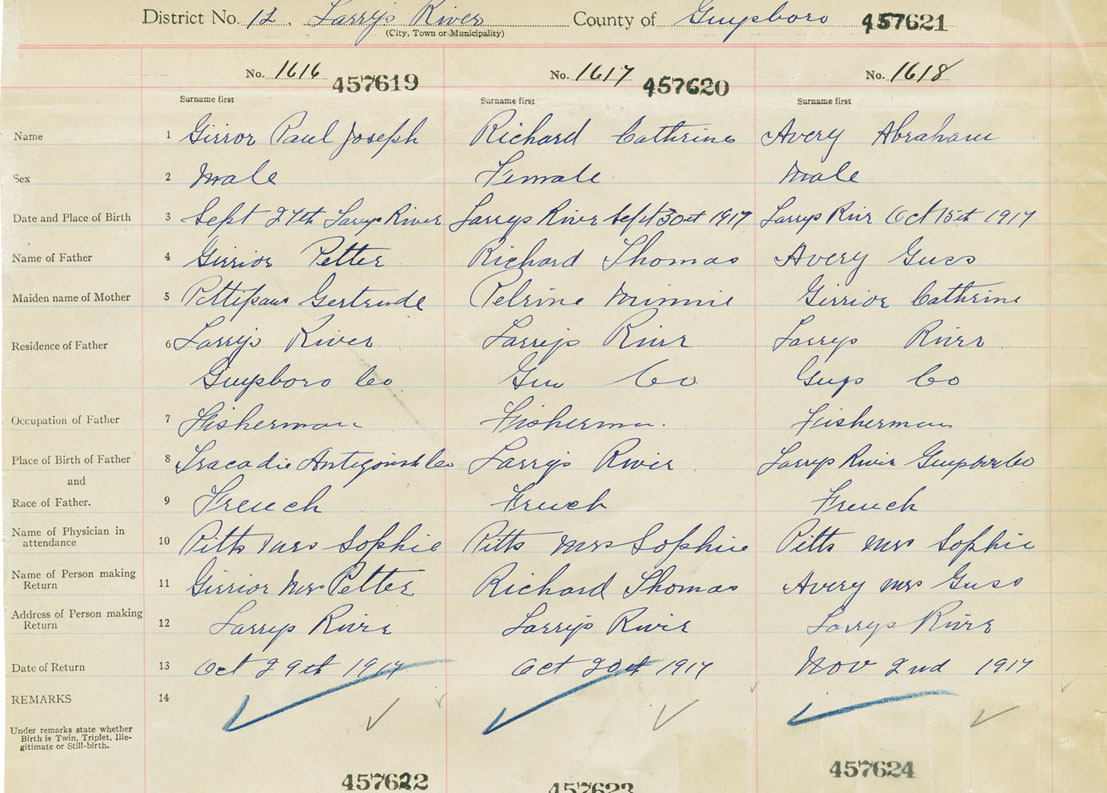 District No. 12. Larrys River County of Guysboro 457621
(City, Town or Municipality)
No. 1616 457619 No. 1617 457620 No. 1618
Surname first Surname first Surname first
Name 1 Girror Paul Joseph Richard Cathrine Avery Abraham
Sex 2 Male Female Male
Date and Place of Birth 3 Sept 27th Larrys River Larrys River Sept 30et 1917 Larrys Rivr Oct 15et 1917
Name of Father 4 Girrior Petter Richard Thomas Avery Guss
Maiden name of Mother 5 Pettipaw Gertrude Pelrine Minnie Girrior Cathrine
Residence of Father 6 Larrys River Larrys Rivr Larrys Rivr
Guysboro Co Guy Co Guys Co
Occupation of Father 7 Fisherman Fisherman. Fisherman
Place of Birth of Father 8 Tracadie Antigonish Co Larrys River Larrys River Guysboro Co
and
Race of Father. 9 French French French
Name of Physician in
attendance 10 Pitts Mrs Sophie Pitts Mrs Sophie Pitts Mrs Sophie
Name of Person making
Return 11 Girrior Mrs Petter Richard Thomas Avery Mrs Guss
Address of Person making
Return 12 Larrys River Larrys River Larrys River
Date of Return 13 Oct 29th 1917 Oct 20et 1917 Nov 2nd 1917
REMARKS 14
Under remarks state whether
Birth is Twin, Triplet, Ille-
gitimate or Still-birth.
457622 457623 457624